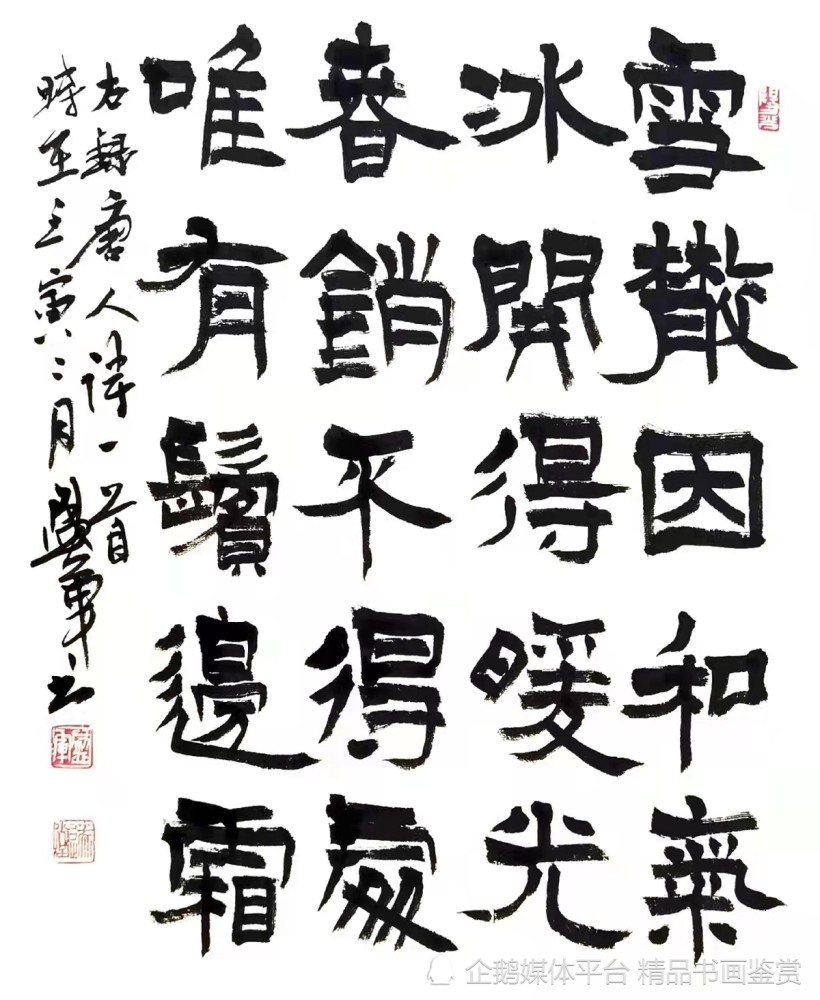 雪散因和氣
冰開得暖光
春銷不得處
唯有鬢邊霜
右録唐人詩一首
時在壬寅二月軍书
企鹅媒体平台 精品书画鉴赏